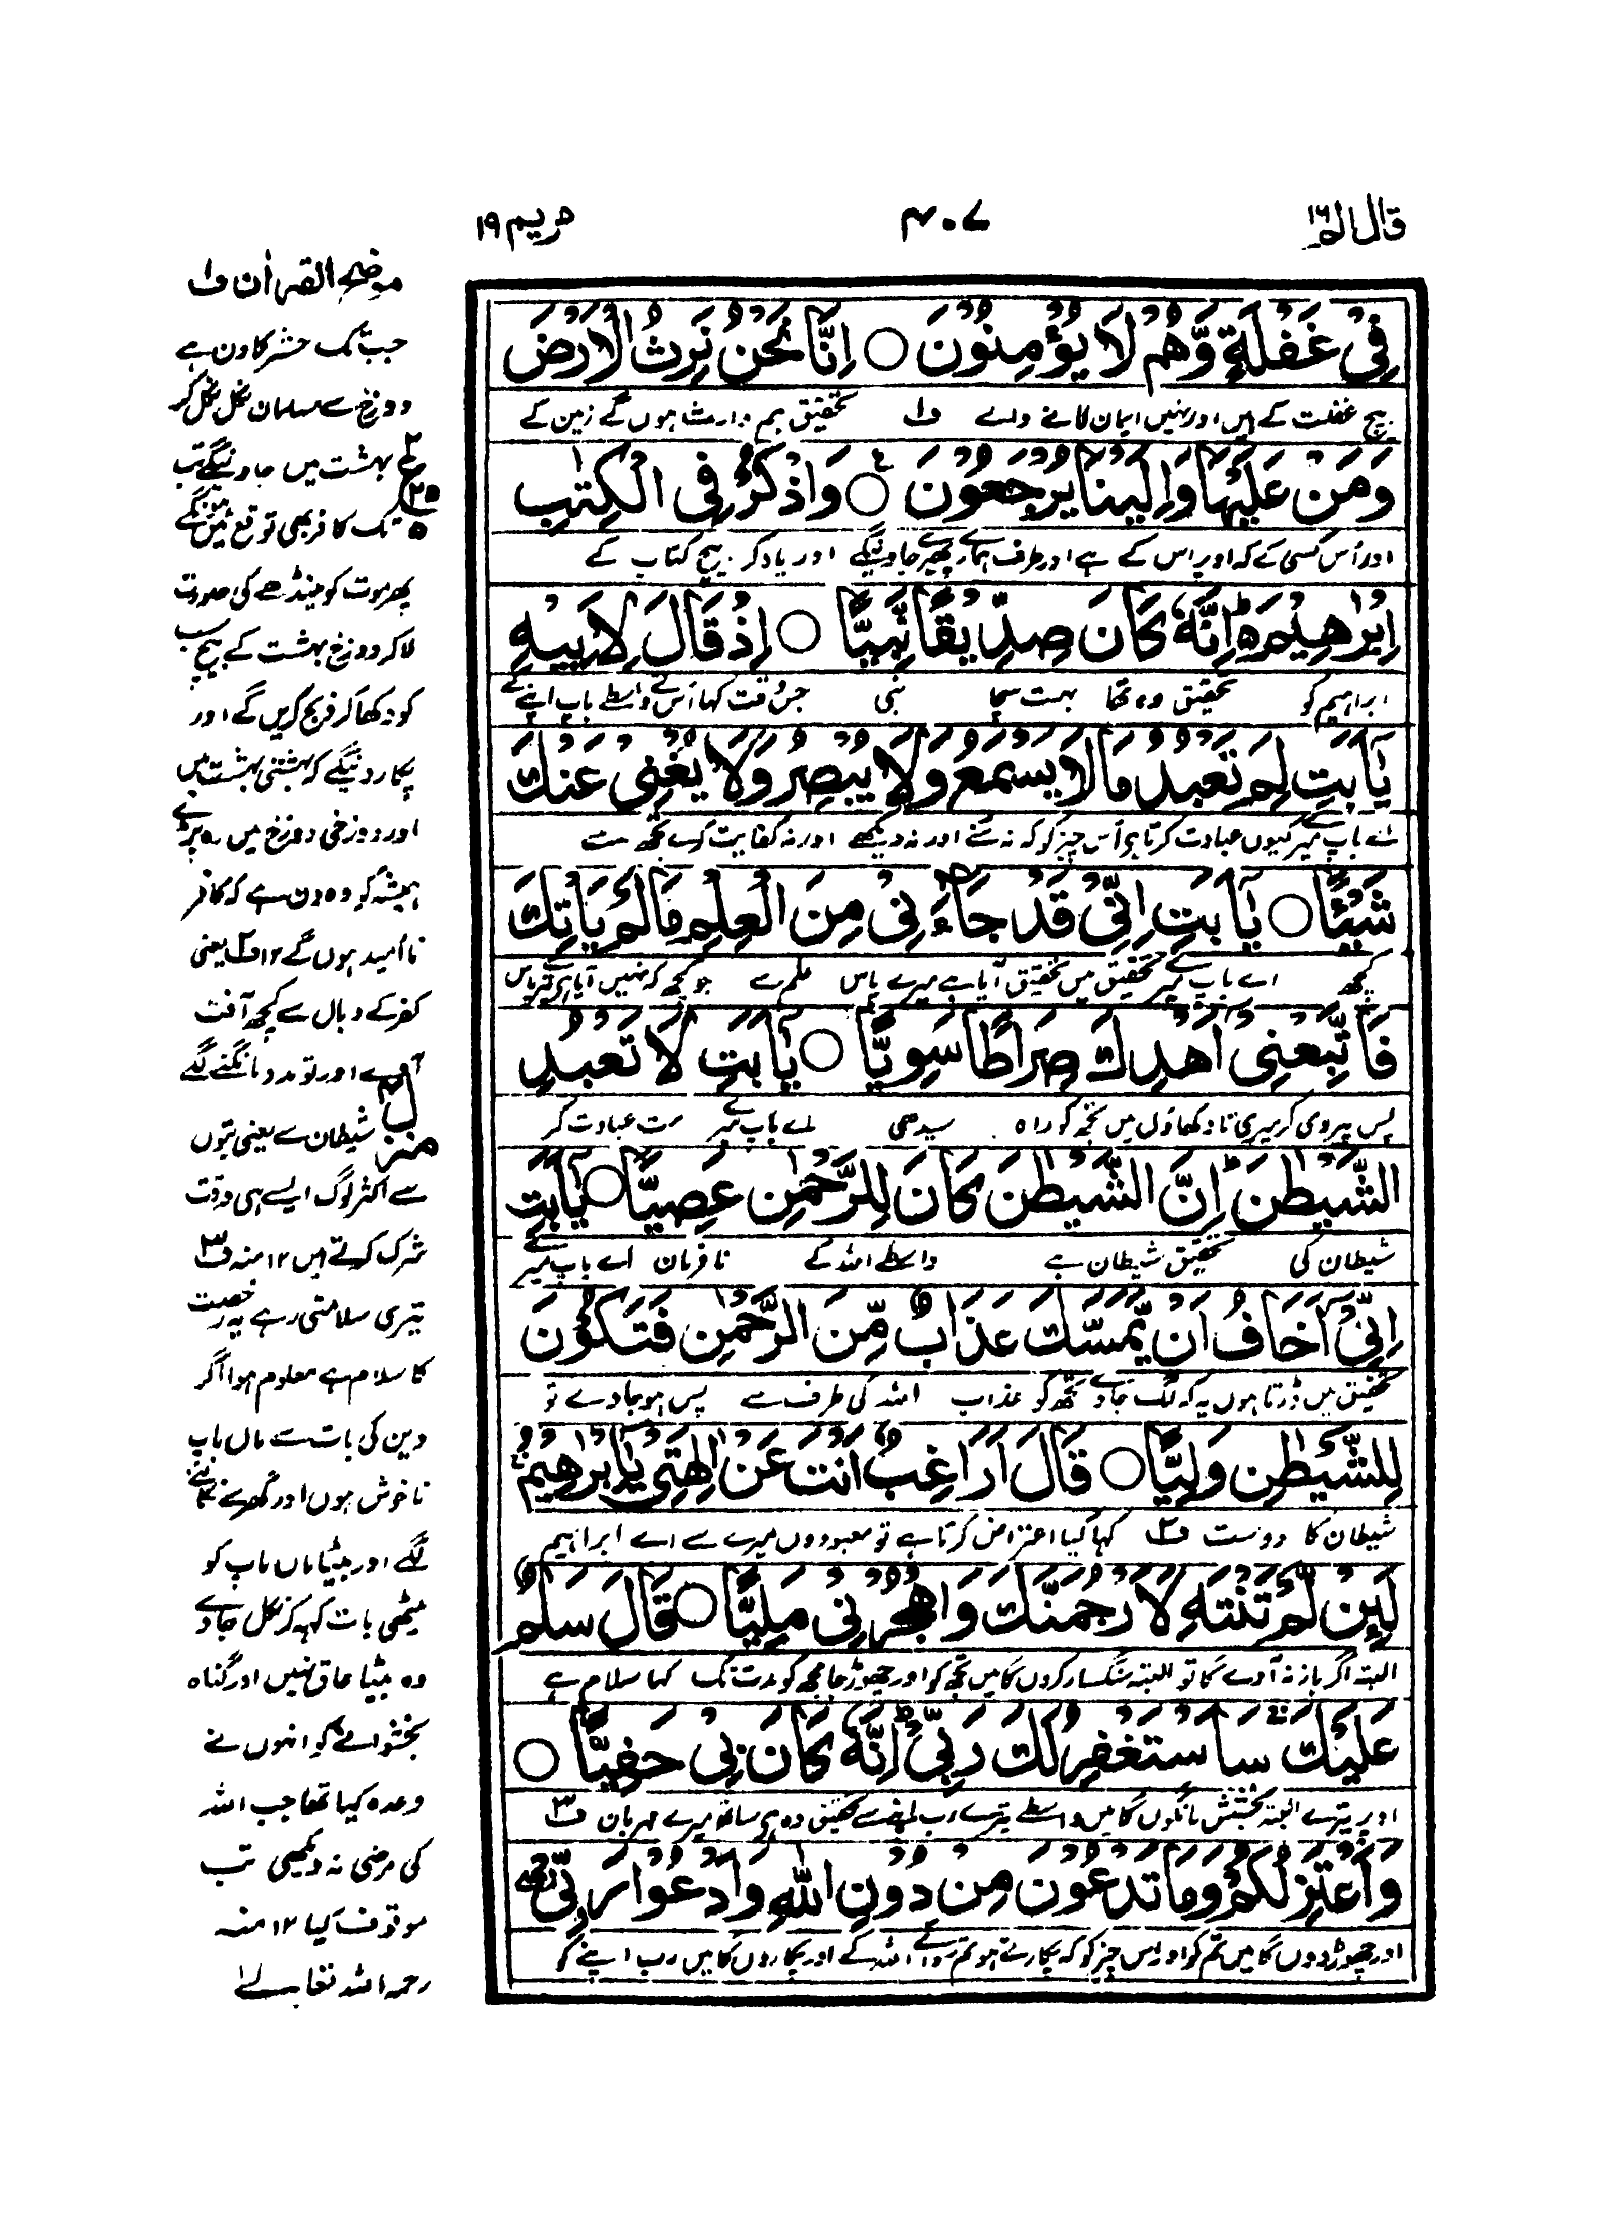 قال الم ١٦
٤٠٧
مريم ١٩
فِىْ غَفْلَةٍ وَّهُمْ لَا يُؤْمِنُوْنَ ○ اِنَّا نَحْنُ نَرِثُ الْاَرْضَ
بیچ غفلت کے ہیں اور نہیں ایمان لانے والے ف١ تحقیق ہم وارث ہوں گے زمین کے
وَمَنْ عَلَيْهَا وَاِلَيْنَا يُرْجَعُوْنَ ○ وَاذْكُرْ فِى الْكِتٰبِ
اور اُس کسی کے کہ اوپر اس کے ہے اور طرف ہمارے پھیرے جاوینگے اور یاد کر بیچ کتاب کے
اِبْرٰهِيْمَ ؕ اِنَّهٗ كَانَ صِدِّيْقًا نَّبِيًّا ○ اِذْ قَالَ لِاَبِيْهِ
ابراہیم کو تحقیق وہ تھا بہت سچا نبی جس وقت کہا اُس نے واسطے باپ اپنے کے
يٰٓاَبَتِ لِمَ تَعْبُدُ مَا لَا يَسْمَعُ وَلَا يُبْصِرُ وَلَا يُغْنِىْ عَنْكَ
اے باپ میرے کیوں عبادت کرتا ہے اُس چیز کو کہ نہ سُنے اور نہ دیکھے اور نہ کفایت کرے تجھ سے
شَيْئًا ○ يٰٓاَبَتِ اِنِّىْ قَدْ جَآءَنِىْ مِنَ الْعِلْمِ مَا لَمْ يَاْتِكَ
کچھ اے باپ میرے تحقیق میں تحقیق آیا ہے میرے پاس علم سے جو کچھ کہ نہیں آیا ہے تیرے پاس
فَاتَّبِعْنِىْٓ اَهْدِكَ صِرَاطًا سَوِيًّا ○ يٰٓاَبَتِ لَا تَعْبُدِ
پس پیروی کر میری تا دکھاؤں میں تجھ کو راہ سیدھی اے باپ میرے مت عبادت کر
الشَّيْطٰنَ ؕ اِنَّ الشَّيْطٰنَ كَانَ لِلرَّحْمٰنِ عَصِيًّا ○ يٰٓاَبَتِ
شیطان کی تحقیق شیطان ہے واسطے اللہ کے نافرمان اے باپ میرے
اِنِّىْٓ اَخَافُ اَنْ يَّمَسَّكَ عَذَابٌ مِّنَ الرَّحْمٰنِ فَتَكُوْنَ
تحقیق میں ڈرتا ہوں یہ کہ لگ جاوے تجھ کو عذاب اللہ کی طرف سے پس ہو جاوے تو
لِلشَّيْطٰنِ وَلِيًّا ○ قَالَ اَرَاغِبٌ اَنْتَ عَنْ اٰلِهَتِىْ يٰٓاِبْرٰهِيْمُ
شیطان کا دوست ف٢ کہا کیا اعتراض کرتا ہے تو معبودوں میرے سے اے ابراہیم
لَئِنْ لَّمْ تَنْتَهِ لَاَرْجُمَنَّكَ وَاهْجُرْنِىْ مَلِيًّا ○ قَالَ سَلٰمٌ
البتہ اگر باز نہ آوے گا تو البتہ سنگسار کروں گا میں تجھ کو اور چھوڑ جا مجھ کو مدت تک کہا سلام ہے
عَلَيْكَ سَاَسْتَغْفِرُ لَكَ رَبِّىْ ؕ اِنَّهٗ كَانَ بِىْ حَفِيًّا ○
اوپر تیرے البتہ بخشش مانگوں گا میں واسطے تیرے رب اپنے سے تحقیق وہ ہے ساتھ میرے مہربان ف٣
وَاَعْتَزِلُكُمْ وَمَا تَدْعُوْنَ مِنْ دُوْنِ اللّٰهِ وَاَدْعُوْا رَبِّىْ
اور چھوڑ دوں گا میں تم کو اور اس چیز کو کہ پکارتے ہو تم سوائے اللہ کے اور پکاروں گا میں رب اپنے کو
موضح القرآن ف١
جب تک حشر کا دن ہے
دوزخ سے مسلمان نکل نکل کر
بہشت میں جاوینگے تب
تک کافر بھی توقع میں ہونگے
پھر موت کو مینڈھے کی صورت
لا کر دوزخ بہشت کے بیچ سب
کو دکھا کر ذبح کریں گے اور
پکار دینگے کہ بہشتی بہشت میں
اور دوزخی دوزخ میں رہ پڑے
ہمیشہ کو وہ دن ہے کہ کافر
نا اُمید ہوں گے ١٢ ف٢ یعنی
کفر کے وبال سے کچھ آفت
آوے اور تو مدد مانگنے لگے
شیطان سے یعنی بتوں
سے اکثر لوگ ایسے ہی وقت
شرک کرتے ہیں ١٢ منہ ف٣
تیری سلامتی رہے یہ رخصت
کا سلام ہے معلوم ہوا اگر
دین کی بات سے ماں باپ
ناخوش ہوں اور گھر سے نکالنے
لگے اور بیٹا ماں باپ کو
میٹھی بات کہہ کر نکل جاوے
وہ بیٹا عاق نہیں اور گناہ
بخشوانے کو انہوں نے
وعدہ کیا تھا جب اللہ
کی مرضی نہ دیکھی تب
موقوف کیا ١٢ منہ
رحمہ اللہ تعالےٰ